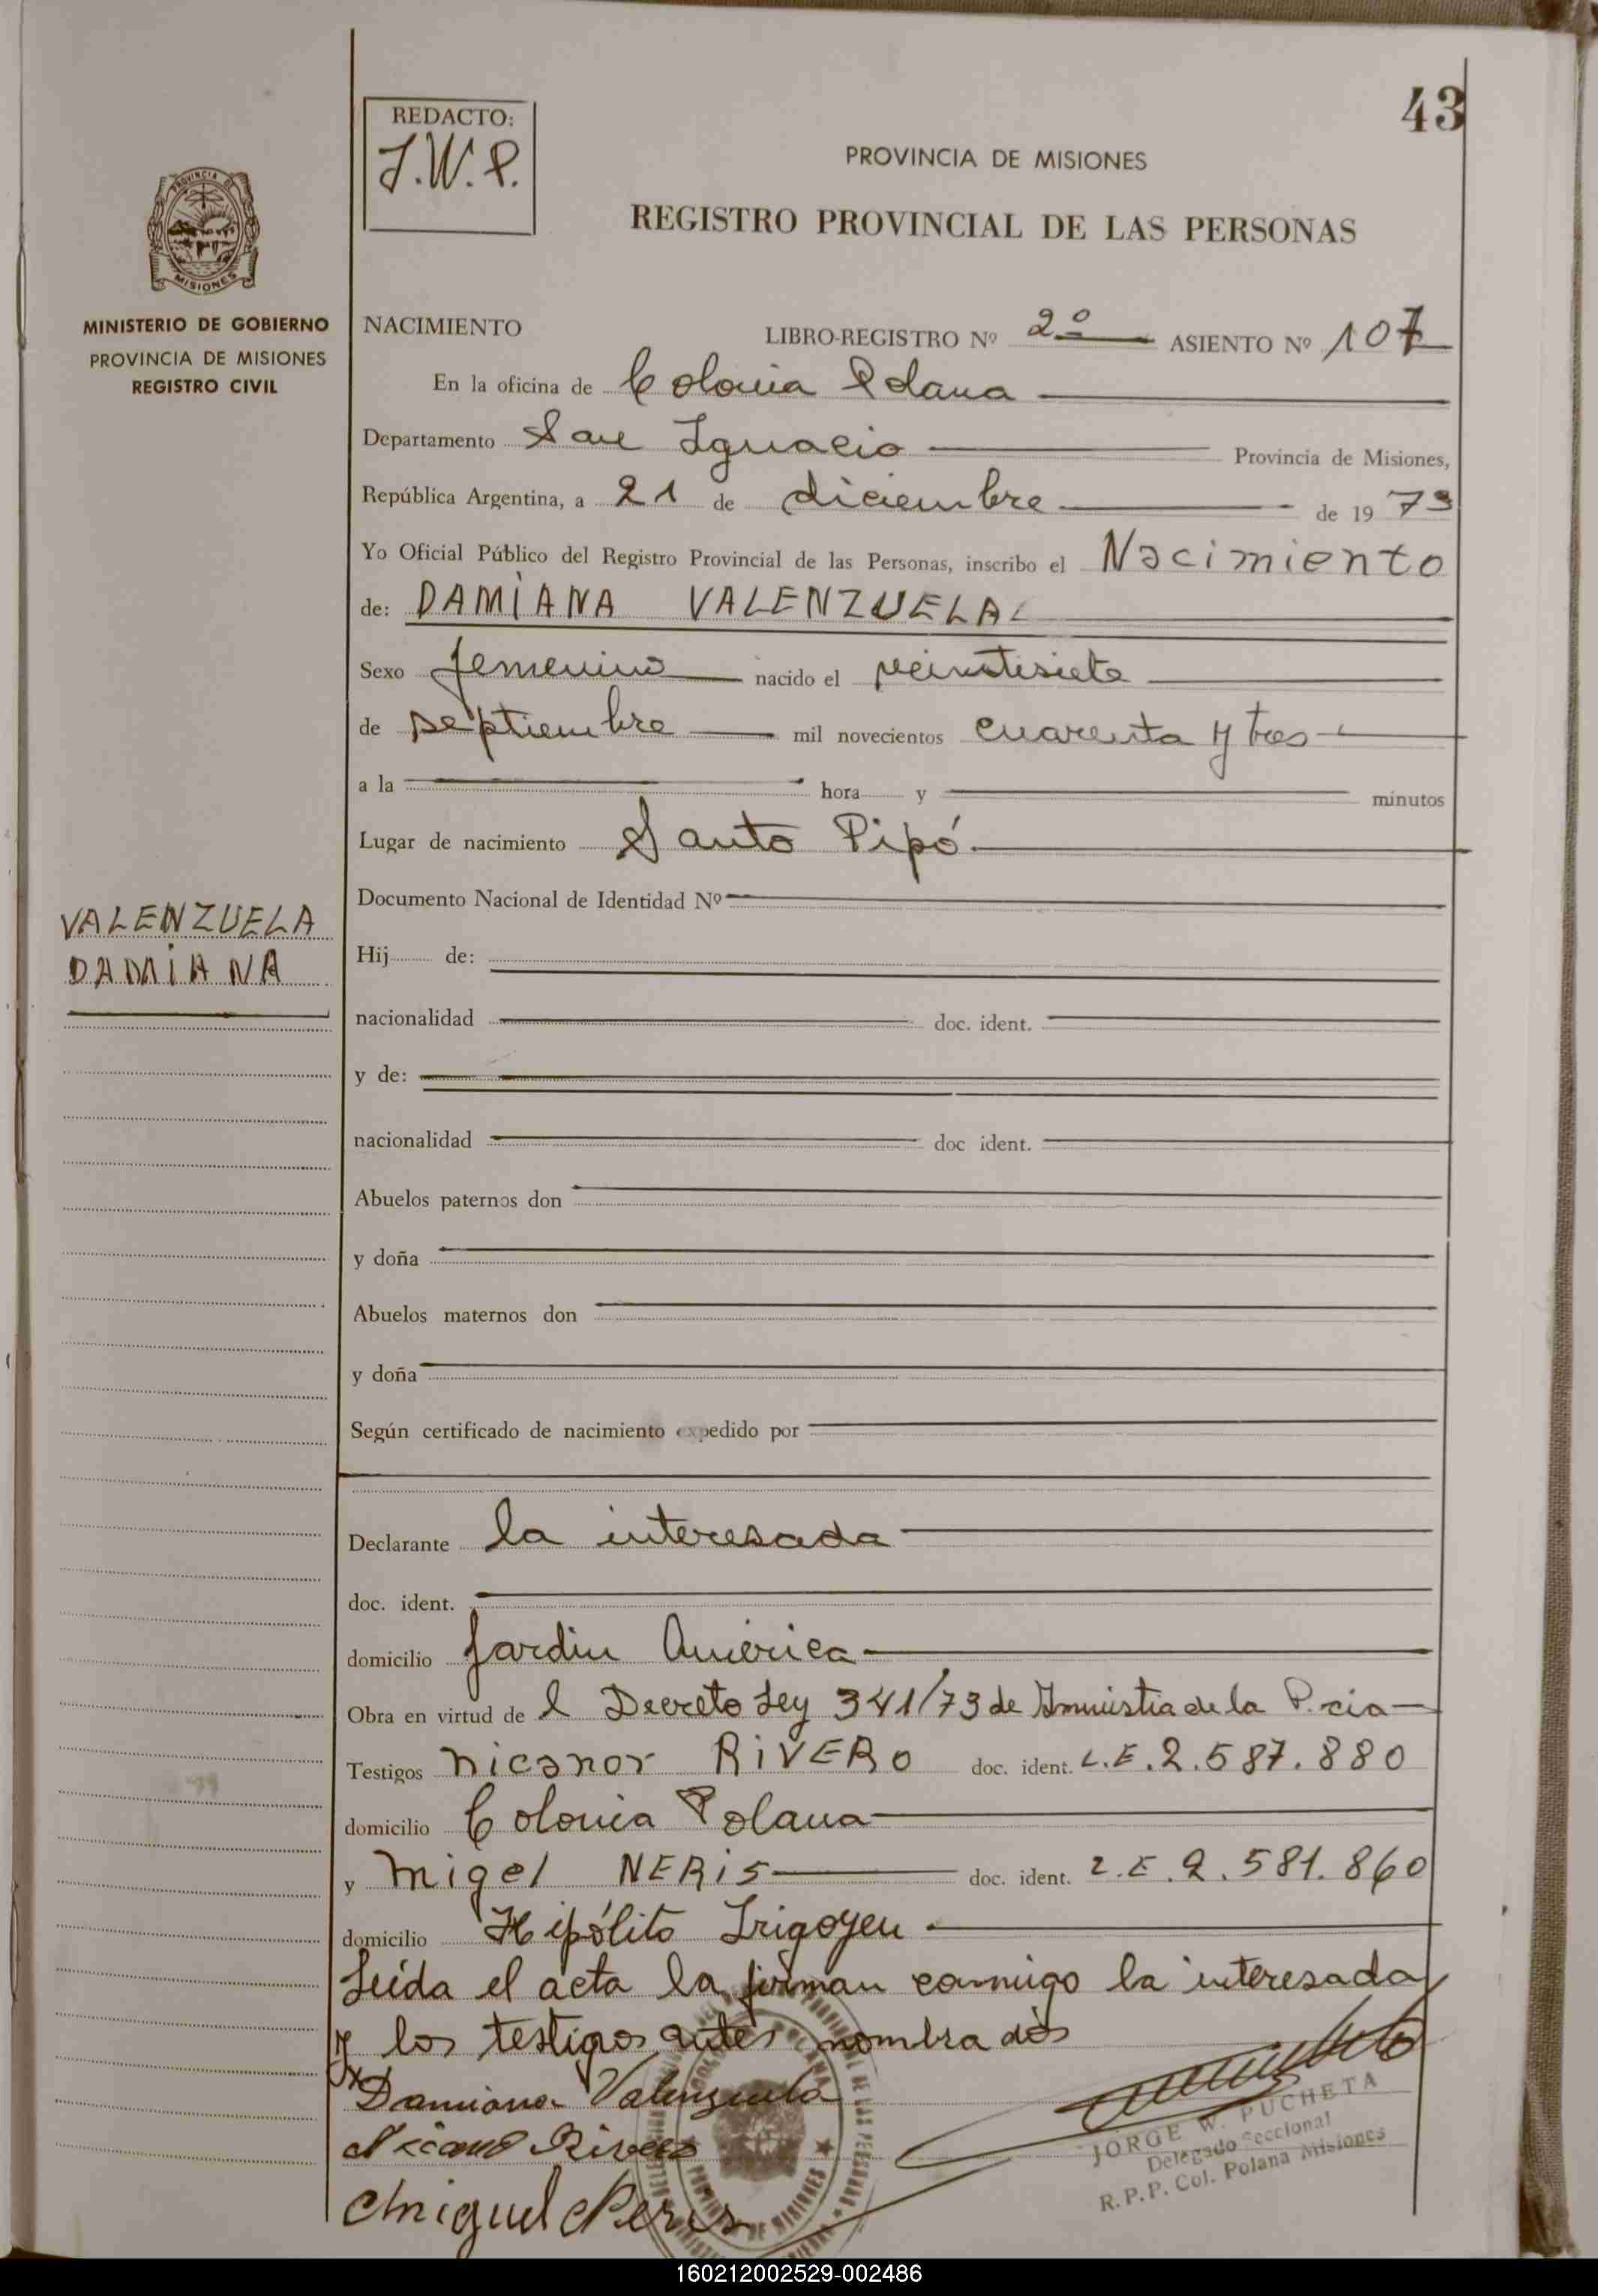 43
REDACTO:
J.W.P.
PROVINCIA DE MISIONES
REGISTRO PROVINCIAL DE LAS PERSONAS
PROVINCIA DE
MISIONES
MINISTERIO DE GOBIERNO
PROVINCIA DE MISIONES
REGISTRO CIVIL
NACIMIENTO LIBRO-REGISTRO Nº 2º ASIENTO Nº 107
En la oficina de Colonia Polana
Departamento San Ignacio Provincia de Misiones,
República Argentina, a 21 de diciembre de 1973
Yo Oficial Público del Registro Provincial de las Personas, inscribo el Nacimiento
de: DAMIANA VALENZUELA
Sexo femenino nacido el veintisiete
de septiembre mil novecientos cuarenta y tres
a la hora y minutos
Lugar de nacimiento Santo Pipó
Documento Nacional de Identidad Nº
VALENZUELA
DAMIANA
Hij de:
nacionalidad doc. ident.
y de:
nacionalidad doc ident.
Abuelos paternos don
y doña
Abuelos maternos don
y doña
Según certificado de nacimiento expedido por
Declarante la interesada
doc. ident.
domicilio Jardin América
Obra en virtud de l Decreto Ley 341/73 de Amnistia de la P.cia
Testigos Nicanor RIVERO doc. ident. L.E. 2.587.880
domicilio Colonia Polana
y Migel NERIS doc. ident. L.E. 2.581.860
domicilio Hipólito Irigoyen
Leída el acta la firman conmigo la interesada
y los testigos antes nombrados
Damiana Valenzuela
Nicano Rivero
Miguel Neris
JORGE W. PUCHETA
Delegado Seccional
R.P.P. Col. Polana Misiones
160212002529-002486